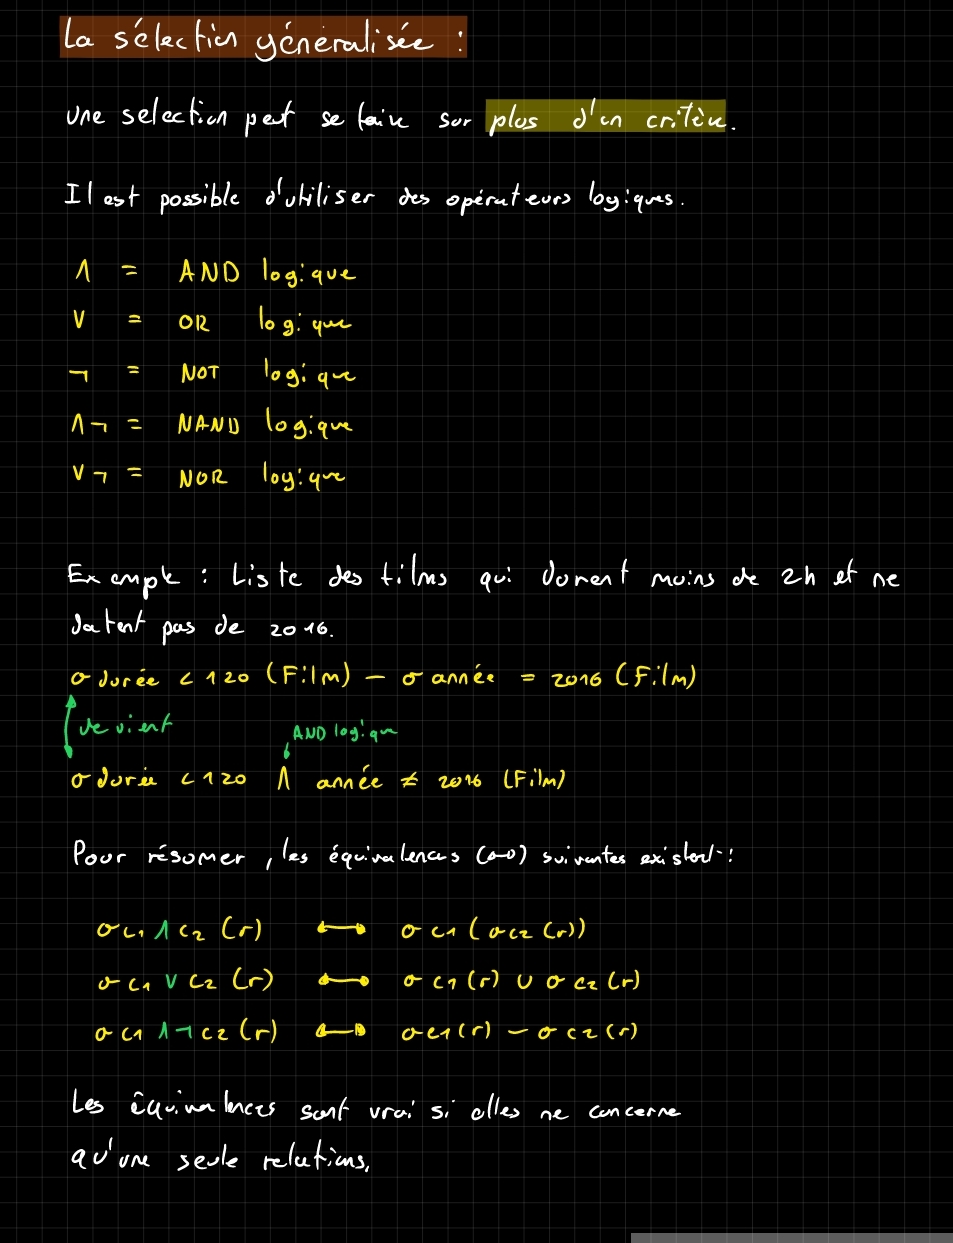 La sélection généralisée :
une selection peut se faire sur plus d'un critère.
Il est possible d'utiliser des opérateurs logiques.
∧ = AND logique
∨ = OR logique
¬ = NOT logique
∧¬ = NAND logique
∨¬ = NOR logique
Exemple : Liste des films qui durent moins de 2h et ne
datent pas de 2016.
σ durée < 120 (Film) − σ année = 2016 (Film)
devient
AND logique
σ durée < 120 ∧ année ≠ 2016 (Film)
Pour résumer, les équivalences (↔) suivantes existent :
σ c1 ∧ c2 (r) ↔ σ c1 (σ c2 (r))
σ c1 ∨ c2 (r) ↔ σ c1 (r) ∪ σ c2 (r)
σ c1 ∧¬ c2 (r) ↔ σ c1 (r) − σ c2 (r)
Les équivalences sont vrai si elles ne concerne
qu'une seule relations.